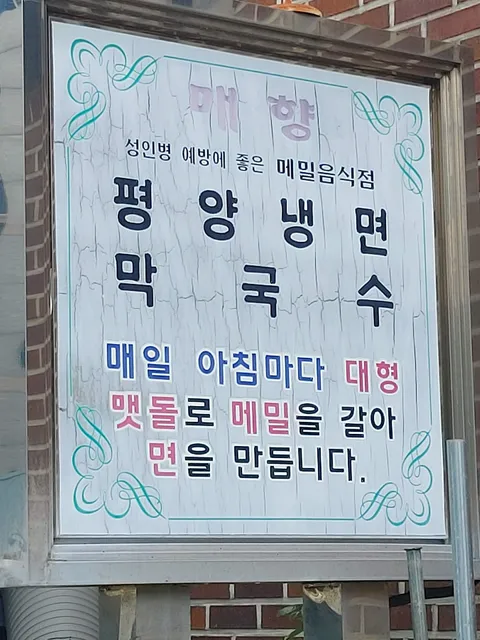 매향
성인병 예방에 좋은 메밀음식점
평양냉면
막국수
매일 아침마다 대형
맷돌로 메밀을 갈아
면을 만듭니다.